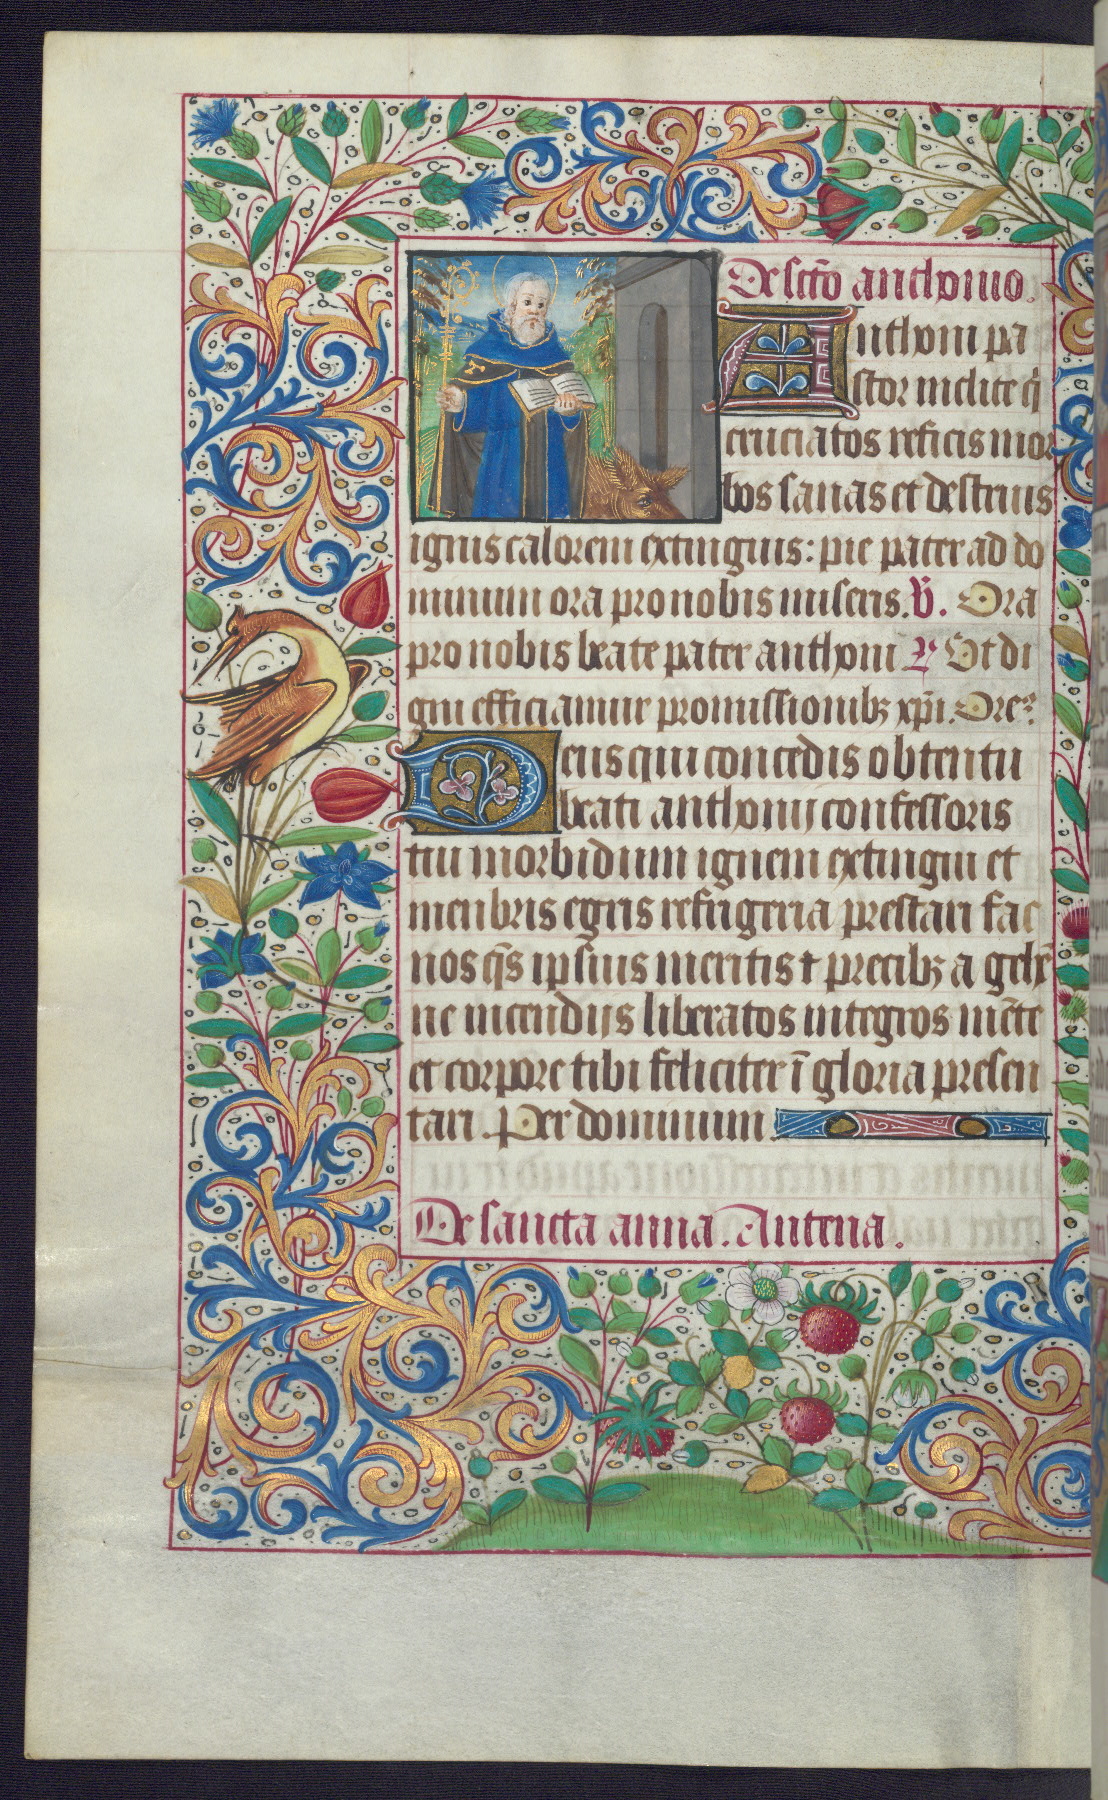 De scto anthonio.
Anthoni pa
stor inclite q̄
cruciatos reficis mor
bos sanas et destruis
ignis calorem extinguis: pie pater ad do
minum ora pro nobis miseris. V. Ora
pro nobis beate pater anthoni R Vt di
gni efficiamur promissionibꝫ xp̄i. Orē.
Deus qui concedis obtentu
beati anthonij confessoris
tui morbidum ignem extingui et
menbris egris refrigeria prestari fac
nos q̄s ipsius meritis ⁊ precibꝫ a gehē
ne incendijs liberatos integros mēte
et corpore tibi feliciter ī gloria presen
tari. Per dominum
De sancta anna. Antena.